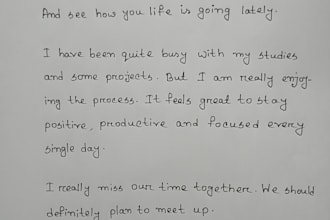 And see how you life is going lately.
I have been quite busy with my studies
and some projects. But I am really enjoy-
ing the process. It feels great to stay
positive, productive and focused every
single day.
I really miss our time together. We should
definitely plan to meet up.